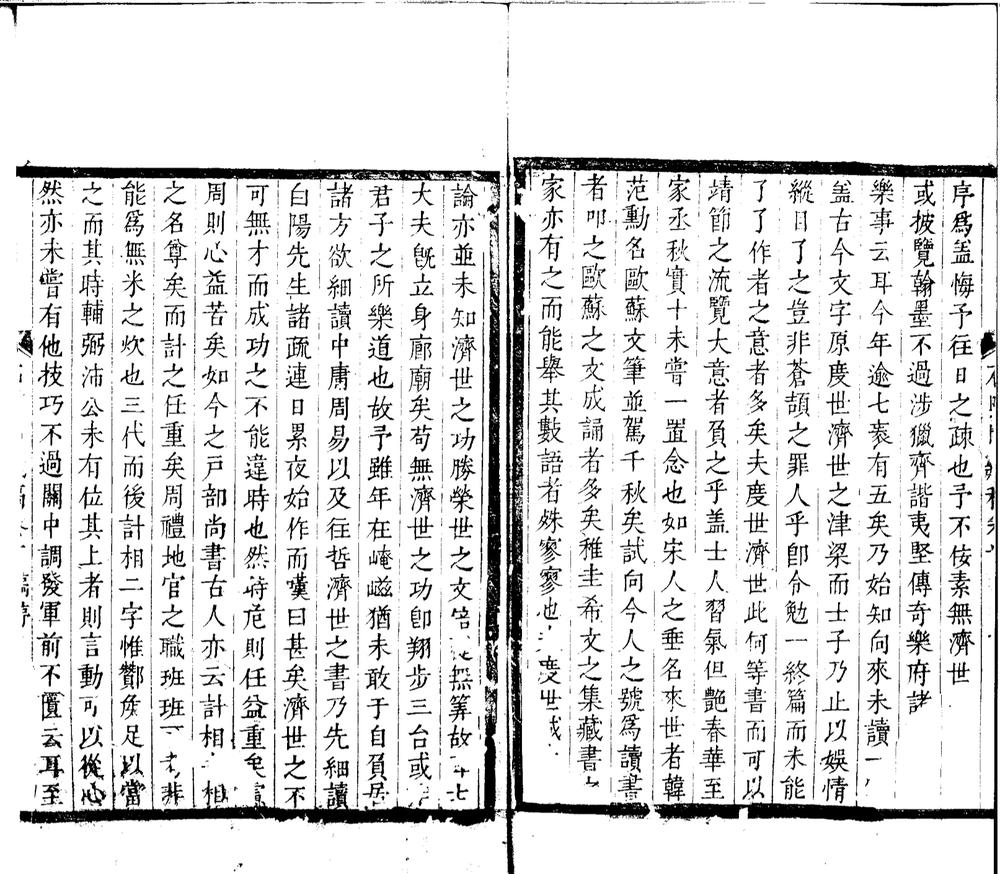 序爲盖悔予往日之疎也予不侫素無濟世
或披覽翰墨不過涉獵齊諧夷堅傳竒樂府諸
樂事云耳今年逾七袠有五矣乃始知向來未讀一
盖古今文字原度世濟世之津梁而士子乃止以娛情
縱日了之豈非蒼頡之罪人乎卽今勉一終篇而未能
了了作者之意者多矣夫度世濟世此何等書而可以
靖節之流覽大意者負之乎盖士人習氣但艷春華至
家丞秋實十未嘗一置念也如宋人之垂名來世者韓
范勳名歐蘇文筆並駕千秋矣試向今人之號爲讀書
者叩之歐蘇之文成誦者多矣稚圭希文之集藏書
家亦有之而能舉其數語者姝寥寥也 度世
論亦並未知濟世之功勝榮世之文 筭故
大夫旣立身廊廟矣苟無濟世之功卽翔步三台或
君子之所樂道也故予雖年在崦嵫猶未敢于自負居
諸方欲細讀中庸周易以及往哲濟世之書乃先細讀
白陽先生諸疏連日累夜始作而嘆曰甚矣濟世之不
可無才而成功之不能違時也然時危則任益重矣
周則心益苦矣如今之戸部尚書古人亦云計相 相
之名尊矣而計之任重矣周禮地官之職班班 非
能爲無米之炊也三代而後計相二字惟酇矦足以當
之而其時輔弼沛公未有位其上者則言動可以從心
然亦未嘗有他技巧不過關中調發軍前不匱云耳至